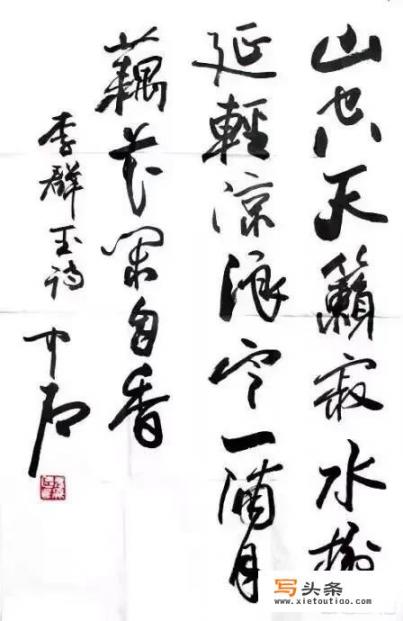 山空天籟寂水榭
延輕涼浪定一浦月
藕花閑自香
李群玉詩 中石
写头条
www.xietoutiao.com